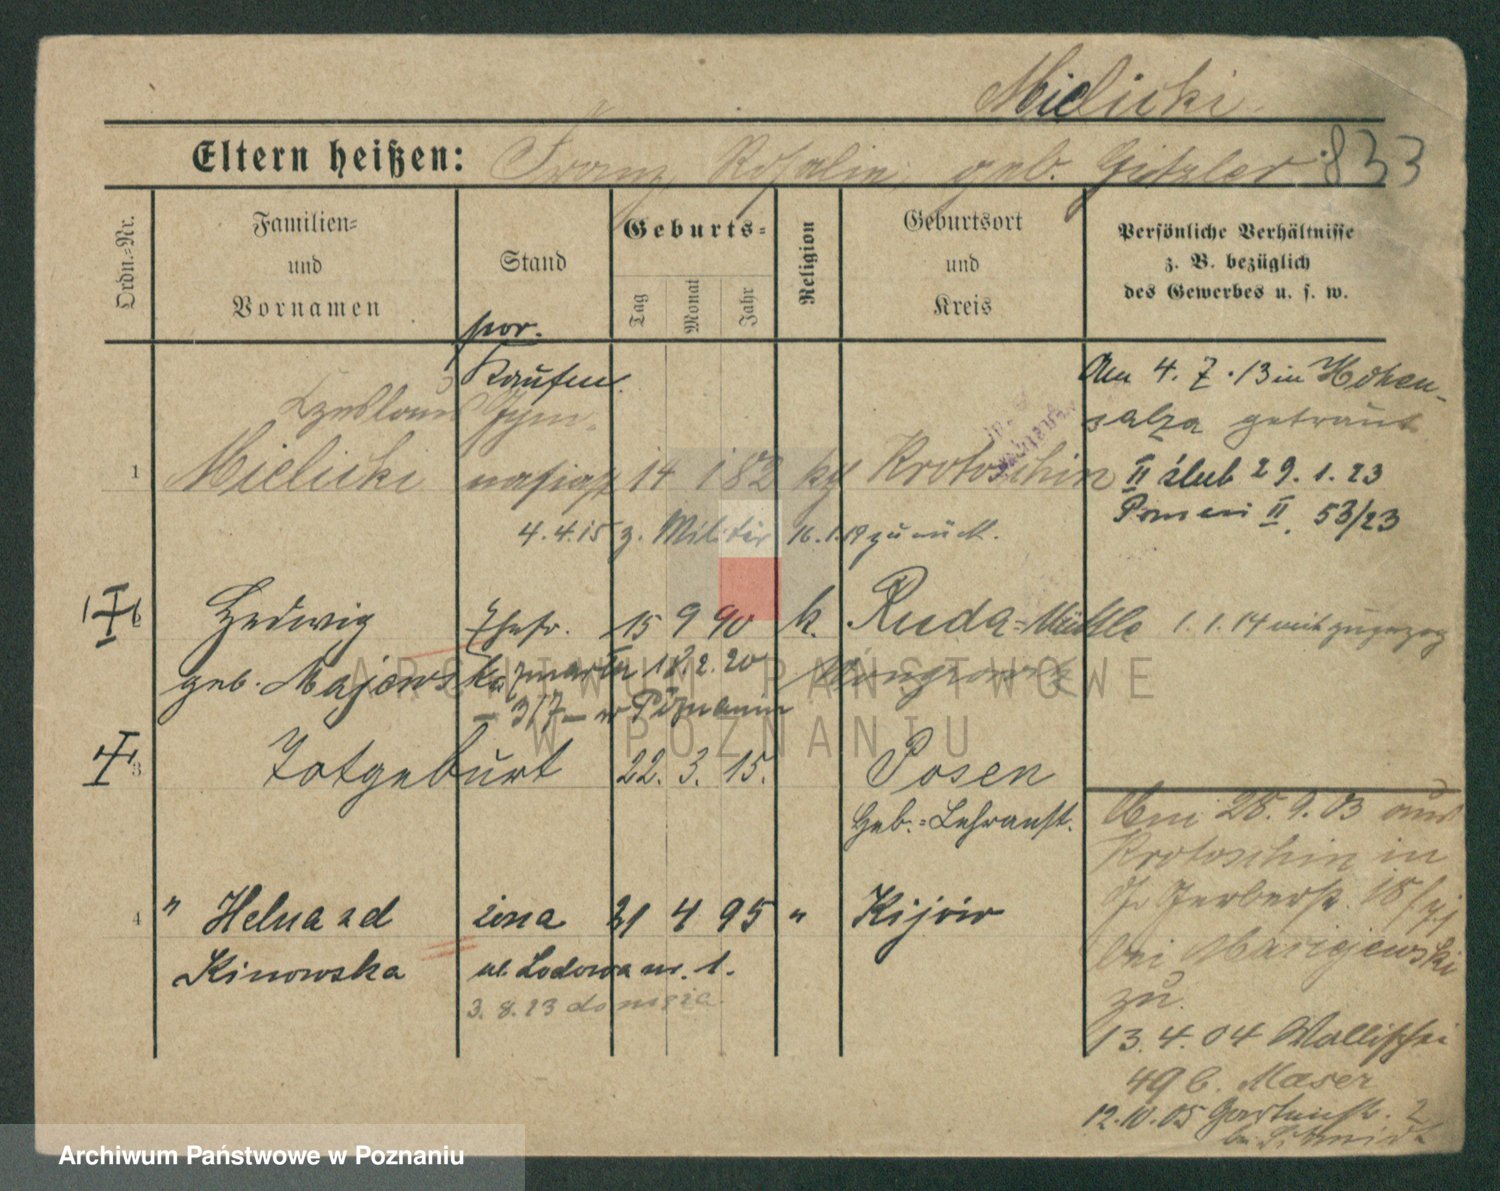 Mielicki
Eltern heißen: Franz Rosalie geb. Gitzler 833
Ordn.-Nr.
Familien-
und
Vornamen
Stand
Geburts-
Tag
Monat
Jahr
Religion
Geburtsort
und
Kreis
Persönliche Verhältnisse
z. B. bezüglich
des Gewerbes u. s. w.
por.
Kaufm.
Am 4. 7. 13 in Hohen-
salza getraut
II ślub 29. 1. 23
Poznań II. 53/23
Czeslaus Gym-
1 Mielicki nasiast 14 1 82 kt Krotoschin
4. 4. 15 z. Militär 16. 1. 19 zurück.
2 Hedwig Ehefr. 15 9 90 k. Ruda-Mühle 1. 1. 14 mit zugezog
geb. Majewska zmarła 18. 2. 20 Wongrowitz
- 3/7 - w Poznaniu
3 Totgeburt 22. 3. 15. Posen
Heb.-Lehranst.
4 " Helena zd żona 21 4 95 " Kijów
Kinowska ul. Lodowa nr. 1.
3. 8. 23 do męża
Am 28. 9. 03 aus
Krotoschin in
Gr Gerberstr. 18
bei
zu.
13. 4. 04 Wallischei
49 b. Maser
12. 10. 05 Gartenstr. 2
bei Schmidt
ARCHIWUM PAŃSTWOWE
W POZNANIU
Archiwum Państwowe w Poznaniu